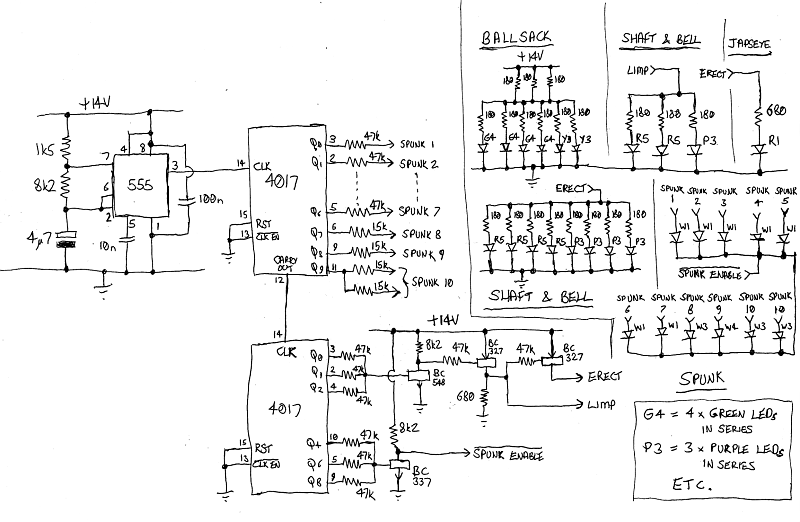 BALLSACK
+14V
180 180 180
180 180 180 180 180 180
G4 G4 G4 G4 Y3 Y3
SHAFT & BELL
LIMP
180 180 180
R5 R5 P3
JAPSEYE
ERECT
680
R1
+14V
1k5
8k2
4µ7
7 4 8 3
6
2 5 1
555
10n
100n
14 CLK
4017
15 RST
13 CLK EN
CARRY OUT
12
Q0 3 47k SPUNK 1
Q1 2 47k SPUNK 2
Q6 5 47k SPUNK 7
Q7 6 15k SPUNK 8
Q8 9 15k SPUNK 9
Q9 11 15k SPUNK 10
15k
ERECT
180 180 180 180 180 180 180 180
R5 R5 R5 R5 P3 P3 P3 P3
SHAFT & BELL
SPUNK SPUNK SPUNK SPUNK SPUNK
1 2 3 4 5
W1 W1 W1 W1 W1
SPUNK ENABLE
SPUNK SPUNK SPUNK SPUNK SPUNK SPUNK
6 7 8 9 10 10
W1 W1 W3 W2 W3 W3
SPUNK
14
CLK
4017
15 RST
13 CLK EN
Q0 3 47k
Q1 2 47k
Q2 4 47k
Q4 10 47k
Q6 5 47k
Q8 9 47k
+14V
8k2
BC 548
47k
BC 327
680
47k
BC 327
ERECT
LIMP
8k2
SPUNK ENABLE
BC 337
G4 = 4 x GREEN LEDs
IN SERIES
P3 = 3 x PURPLE LEDs
IN SERIES
ETC.